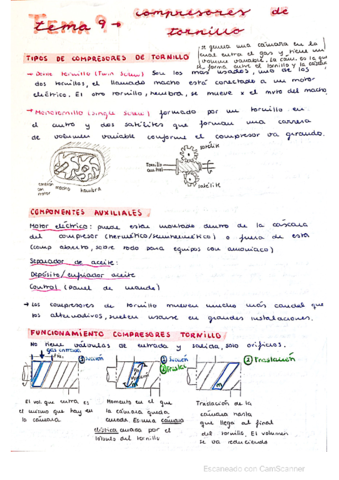 tema 9→ compresores de
tornillo
TIPOS DE COMPRESORES DE TORNILLO
se genera una cámara en la
cual entra el gas y tiene un
volumen variable. La cám. es la que
se forma entre el tornillo y la
→ Doble tornillo (Twin Screw) Son los más usados, uno de los
dos tornillos, el llamado macho está conectado a un motor
eléctrico. El otro tornillo, hembra, se mueve x el mvto del macho
→ Monotornillo (Single Screw) formado por un tornillo en
el centro y dos satélites que forman una carrera
de volumen variable conforme el compresor va girando.
satélite
Tornillo
satélite
conexión
con
motor
macho
hembra
COMPONENTES AUXILIARES
Motor eléctrico: puede estar montado dentro de la cáscara
del compresor (hermético/semihermético) o fuera de esta
(comp abierto, sobre todo para equipos con amoniaco)
Separador de aceite:
Depósito/enfriador aceite
Control (panel de mando)
→ Los compresores de tornillo mueven mucho más caudal que
los alternativos, suelen usarse en grandes instalaciones.
FUNCIONAMIENTO COMPRESORES TORNILLO
No tiene válvulas de entrada y salida, solo orificios.
gas entrada
① Succión
① Succión
② Traslación
El vol que entra es
el mismo que hay en
la cámara
Momento en el que
la cámara queda
cerrada. Es una cámara
creada por el
lóbulo del tornillo
Traslación de la
cámara hasta
que llega al final
del tornillo. El volumen
se va reduciendo
Escaneado con CamScanner